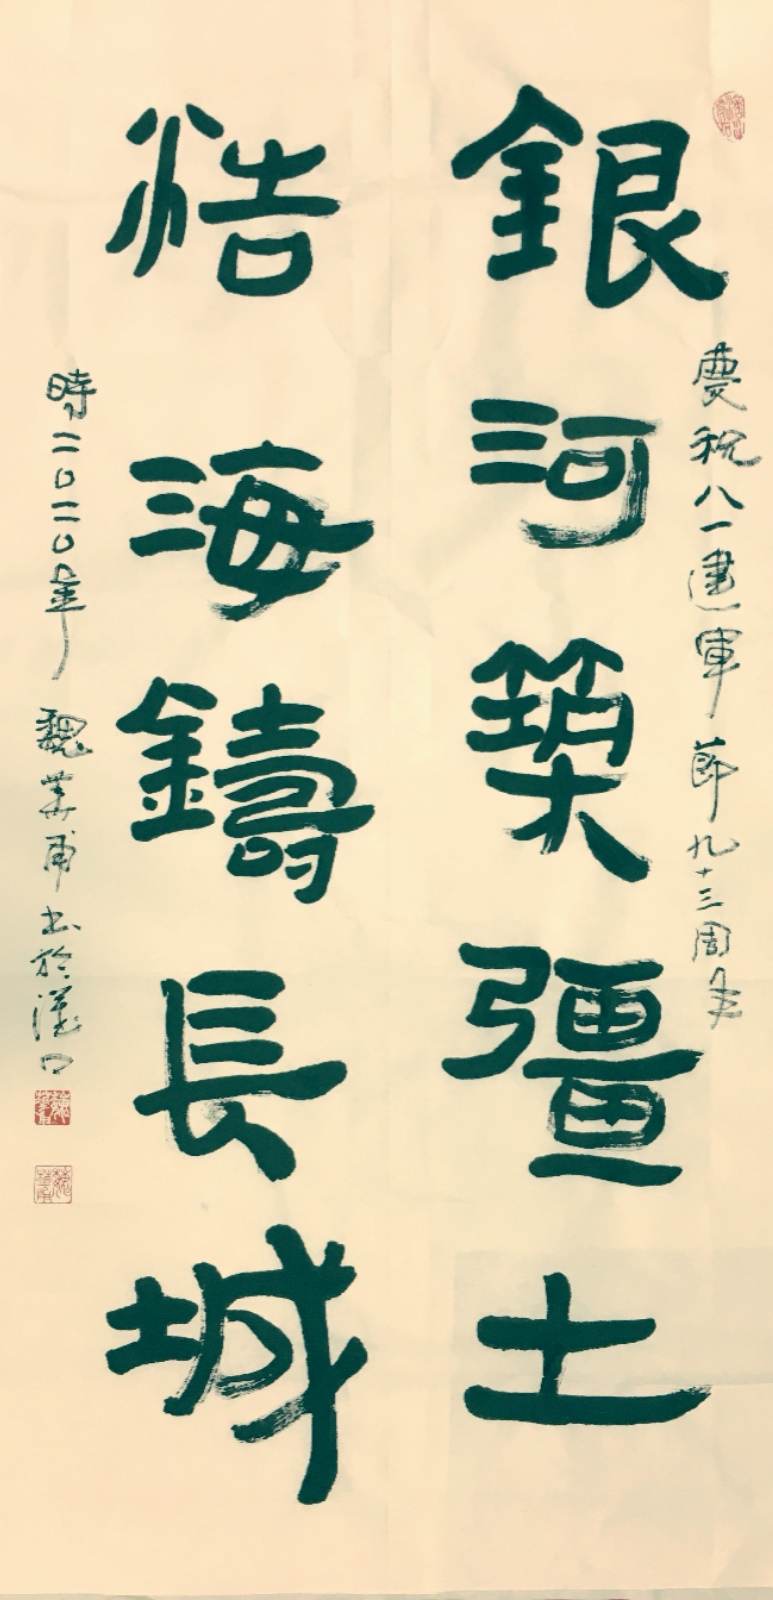 慶祝八一建軍節九十三周年
銀河築彊土
浩海鑄長城
時二〇二〇年 魏華甫书於漢口